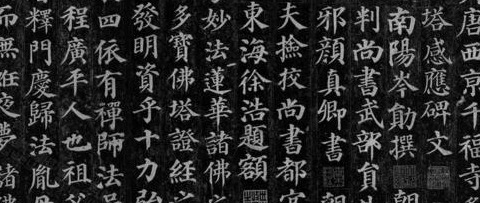 唐西京千福寺
塔感應碑文
南陽岑勛撰 朝
判尚書武部員
邪顏真卿書 朝
夫撿挍尚書都官
東海徐浩題額
妙法蓮華諸佛
多寶佛塔證經之
發明資乎十力弘
四依有禪師法
程廣平人也祖父
釋門慶歸法胤
而無在夜夢諸佛